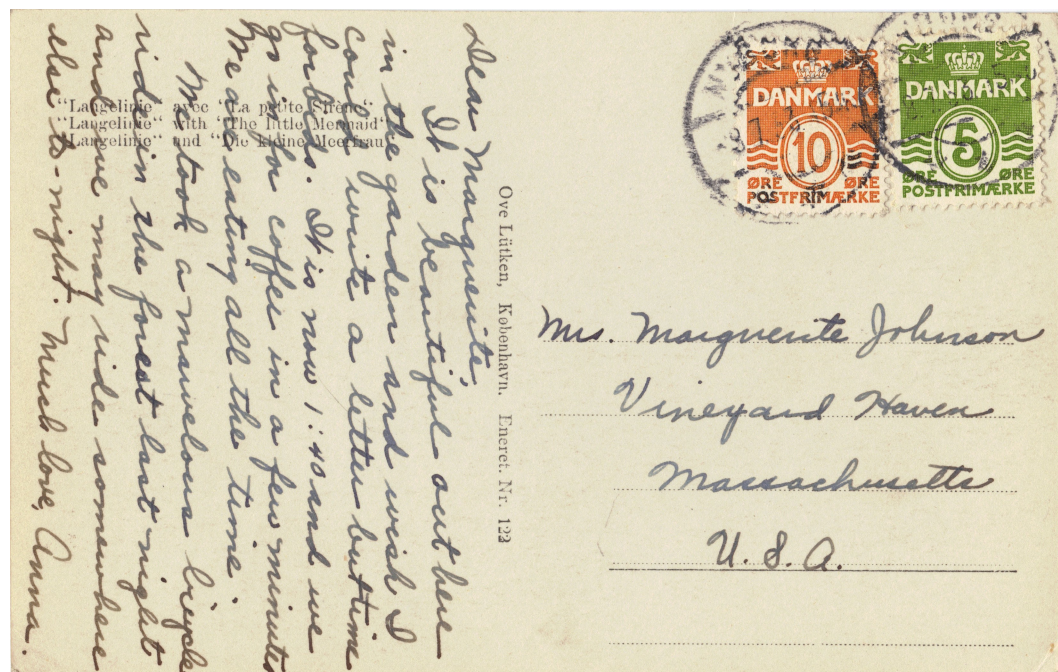 "Langelinie" avec "La petite Sirène"
"Langelinie" with "The little Mermaid"
"Langelinie" and "Die kleine Meerfrau"
Dear Marguerite,
It is beautiful out here
in the garden and wish I
could write a letter but time
forbids. It is now 1:40 and we
go in for coffee in a few minutes
We are eating all the time.
We took a marvelous bicycle
ride in the forest last night
and we may ride somewhere
else to-night. Much love, Anna.
Ove Lütken, København. Eneret. Nr. 122
DANMARK
10
ØRE ØRE
POSTFRIMÆRKE
DANMARK
5
ØRE ØRE
POSTFRIMÆRKE
Mrs. Marguerite Johnson
Vineyard Haven
Massachusetts
U.S.A.